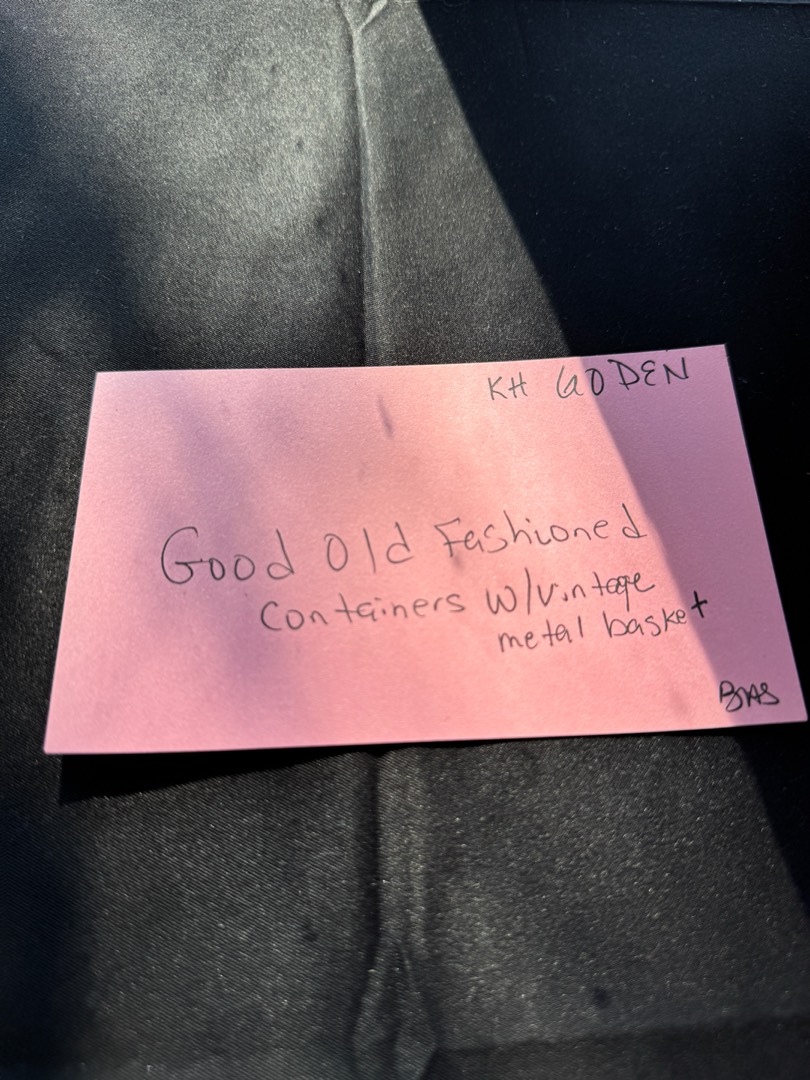 KH GODEN
Good Old Fashioned
Containers w/vintage
metal basket